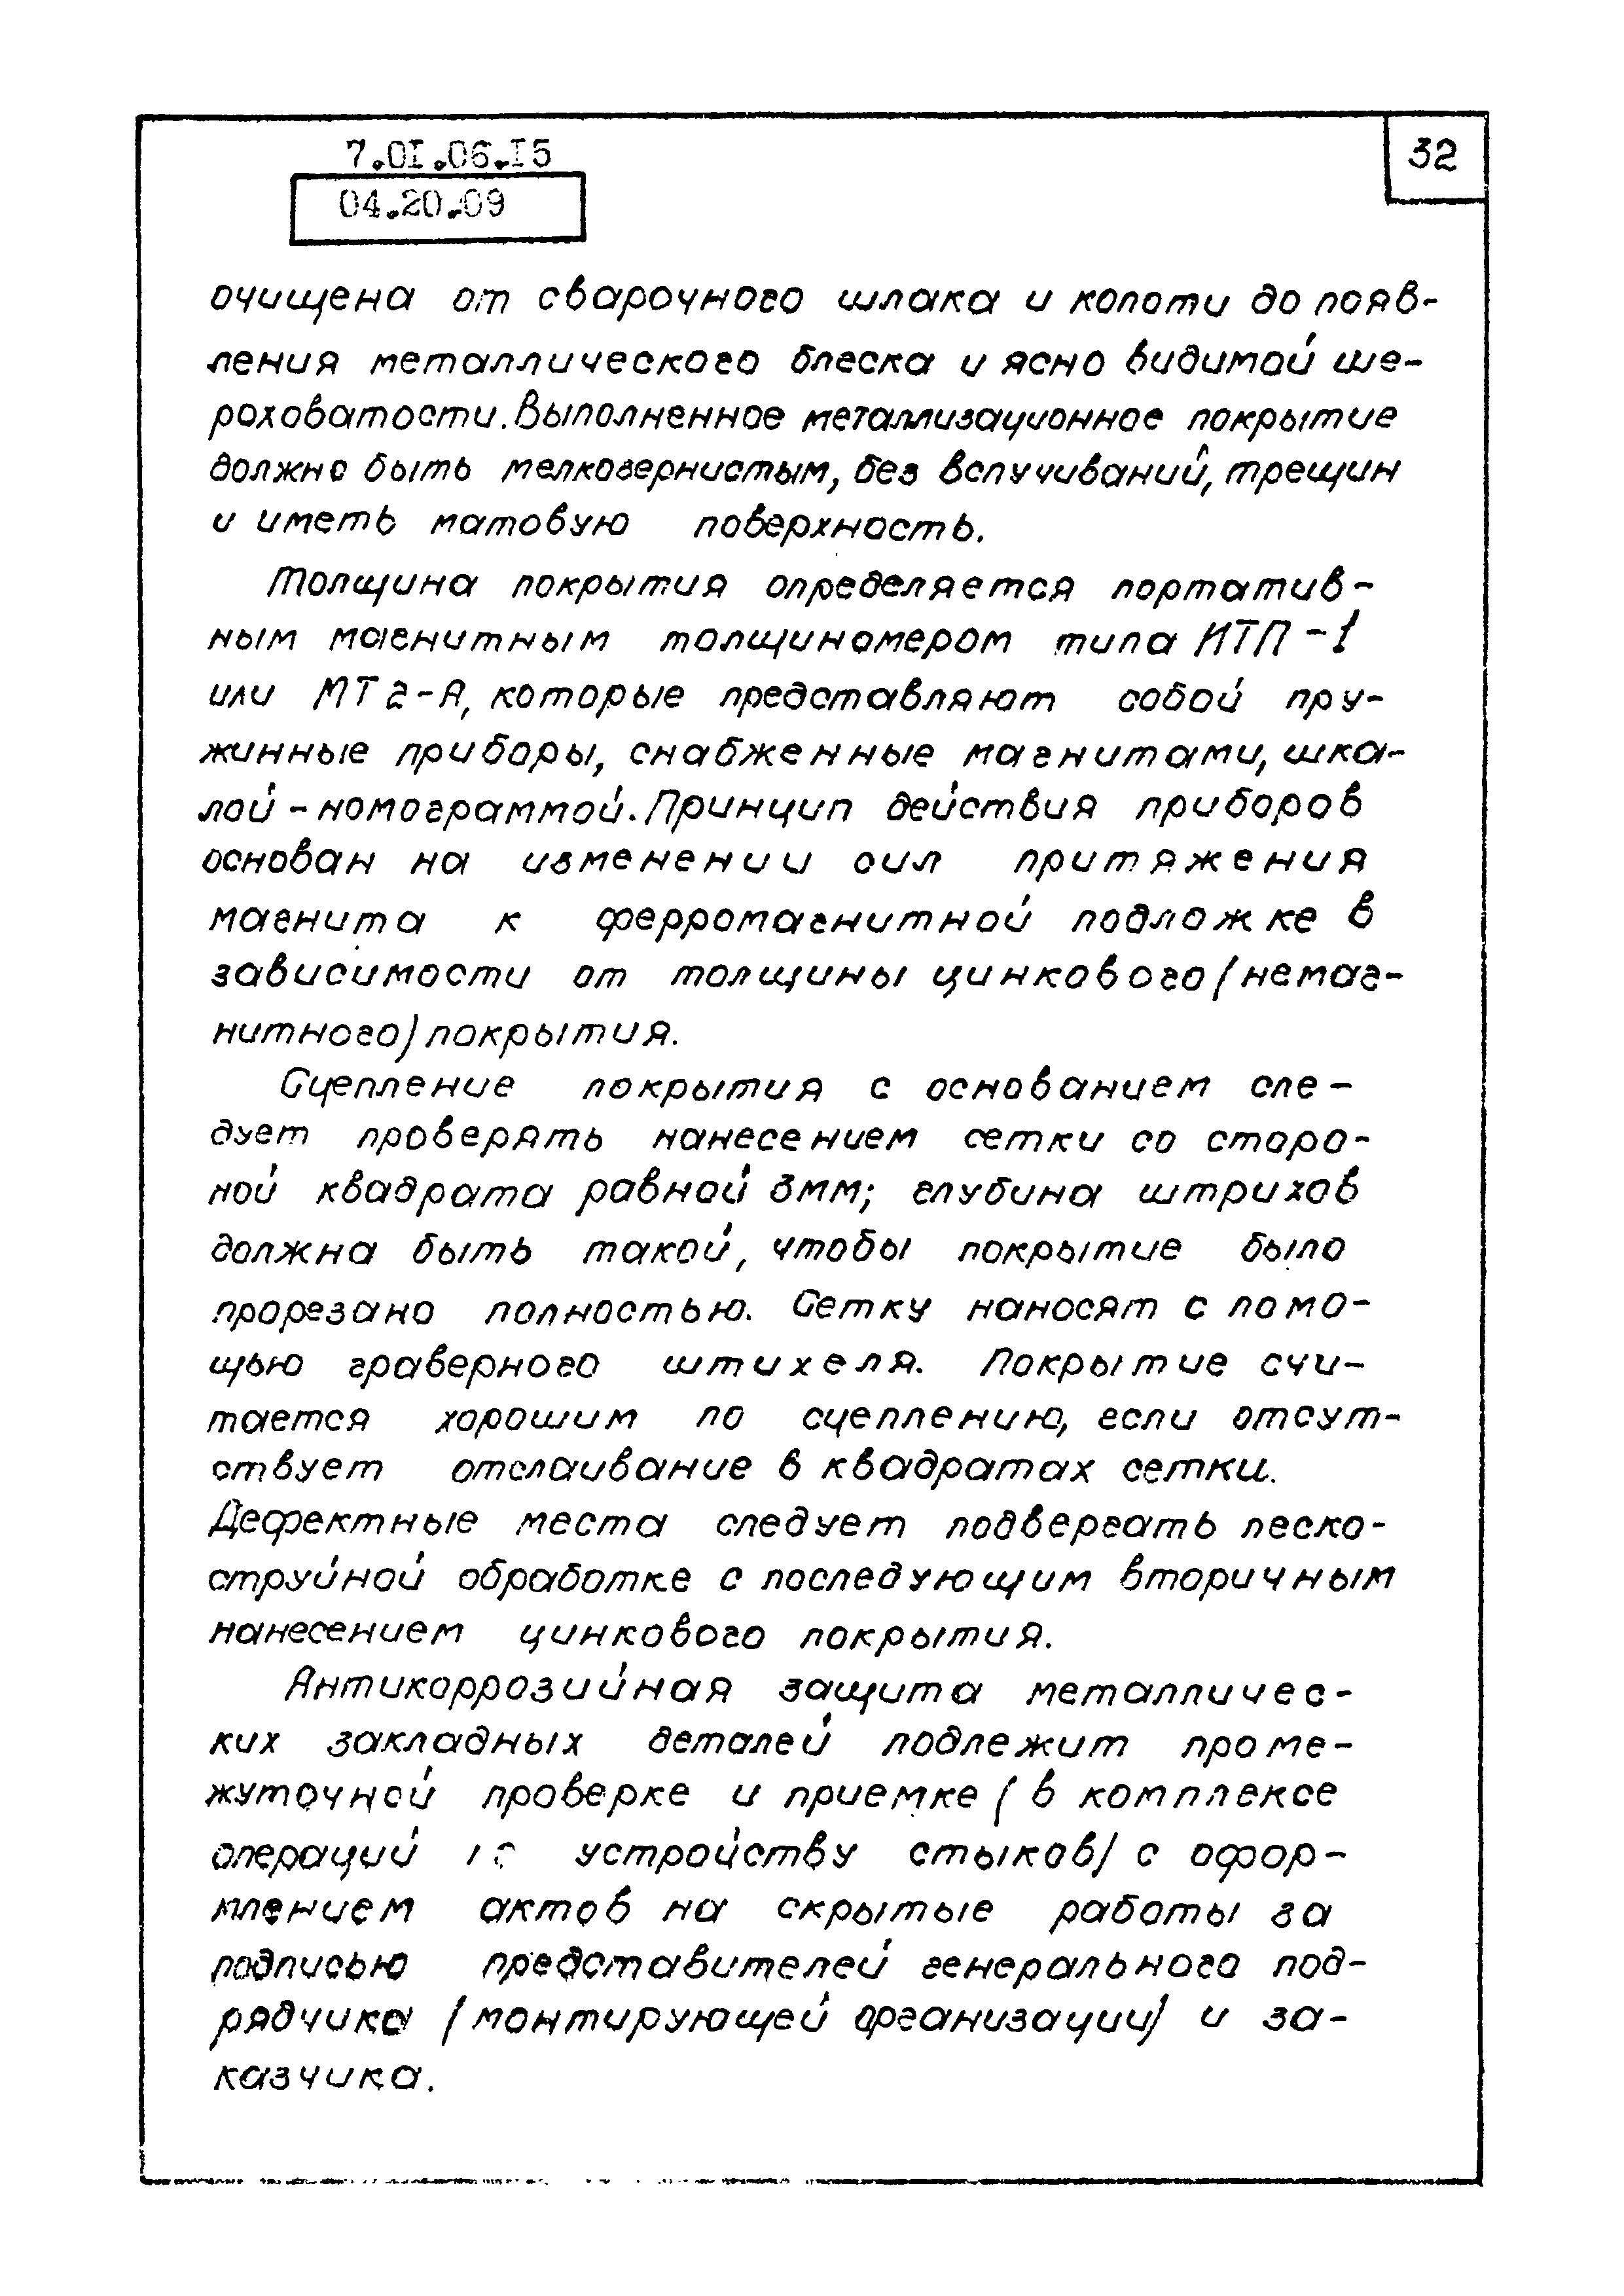 7.01.06.15
32
04.20.09
очищена от сварочного шлака и копоти до появ-
ления металлического блеска и ясно видимой ше-
роховатости. Выполненное металлизационное покрытие
должно быть мелкозернистым, без вспучиваний, трещин
и иметь матовую поверхность.
Толщина покрытия определяется портатив-
ным магнитным толщиномером типа ИТП-1
или МТ2-А, которые представляют собой пру-
жинные приборы, снабженные магнитами, шка-
лой - номограммой. Принцип действия приборов
основан на изменении сил притяжения
магнита к ферромагнитной подложке в
зависимости от толщины цинкового (немаг-
нитного) покрытия.
Сцепление покрытия с основанием сле-
дует проверять нанесением сетки со сторо-
ной квадрата равной 3мм; глубина штрихов
должна быть такой, чтобы покрытие было
прорезано полностью. Сетку наносят с помо-
щью граверного штихеля. Покрытие счи-
тается хорошим по сцеплению, если отсут-
ствует отслаивание в квадратах сетки.
Дефектные места следует подвергать песко-
струйной обработке с последующим вторичным
нанесением цинкового покрытия.
Антикоррозийная защита металличес-
ких закладных деталей подлежит проме-
жуточной проверке и приемке (в комплексе
операций устройству стыков) с офор-
млением актов на скрытые работы за
подписью представителей генерального под-
рядчика (монтирующей организации) и за-
казчика.